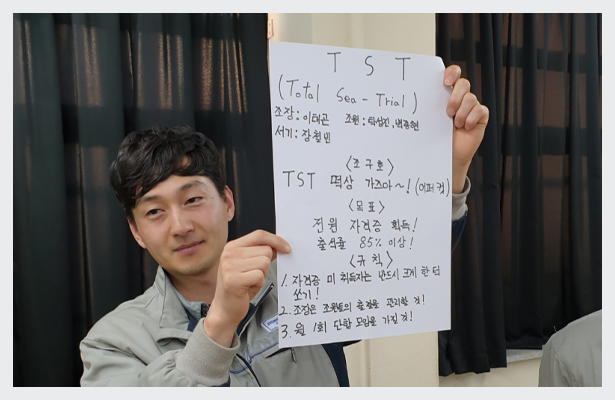 T S T
(Total Sea-Trial)
조장: 이태곤 조원: 탁성진, 백종현
서기: 장철민
<조 구호>
TST 떡상 가즈아~! (어퍼컷)
<목표>
전원 자격증 획득!
출석률 85% 이상!
<규칙>
1. 자격증 미 취득자는 반드시 크게 한 턱
쏘기!
2. 조장은 조원들의 출결을 관리할 것!
3. 월 1회 단합 모임을 가질 것!